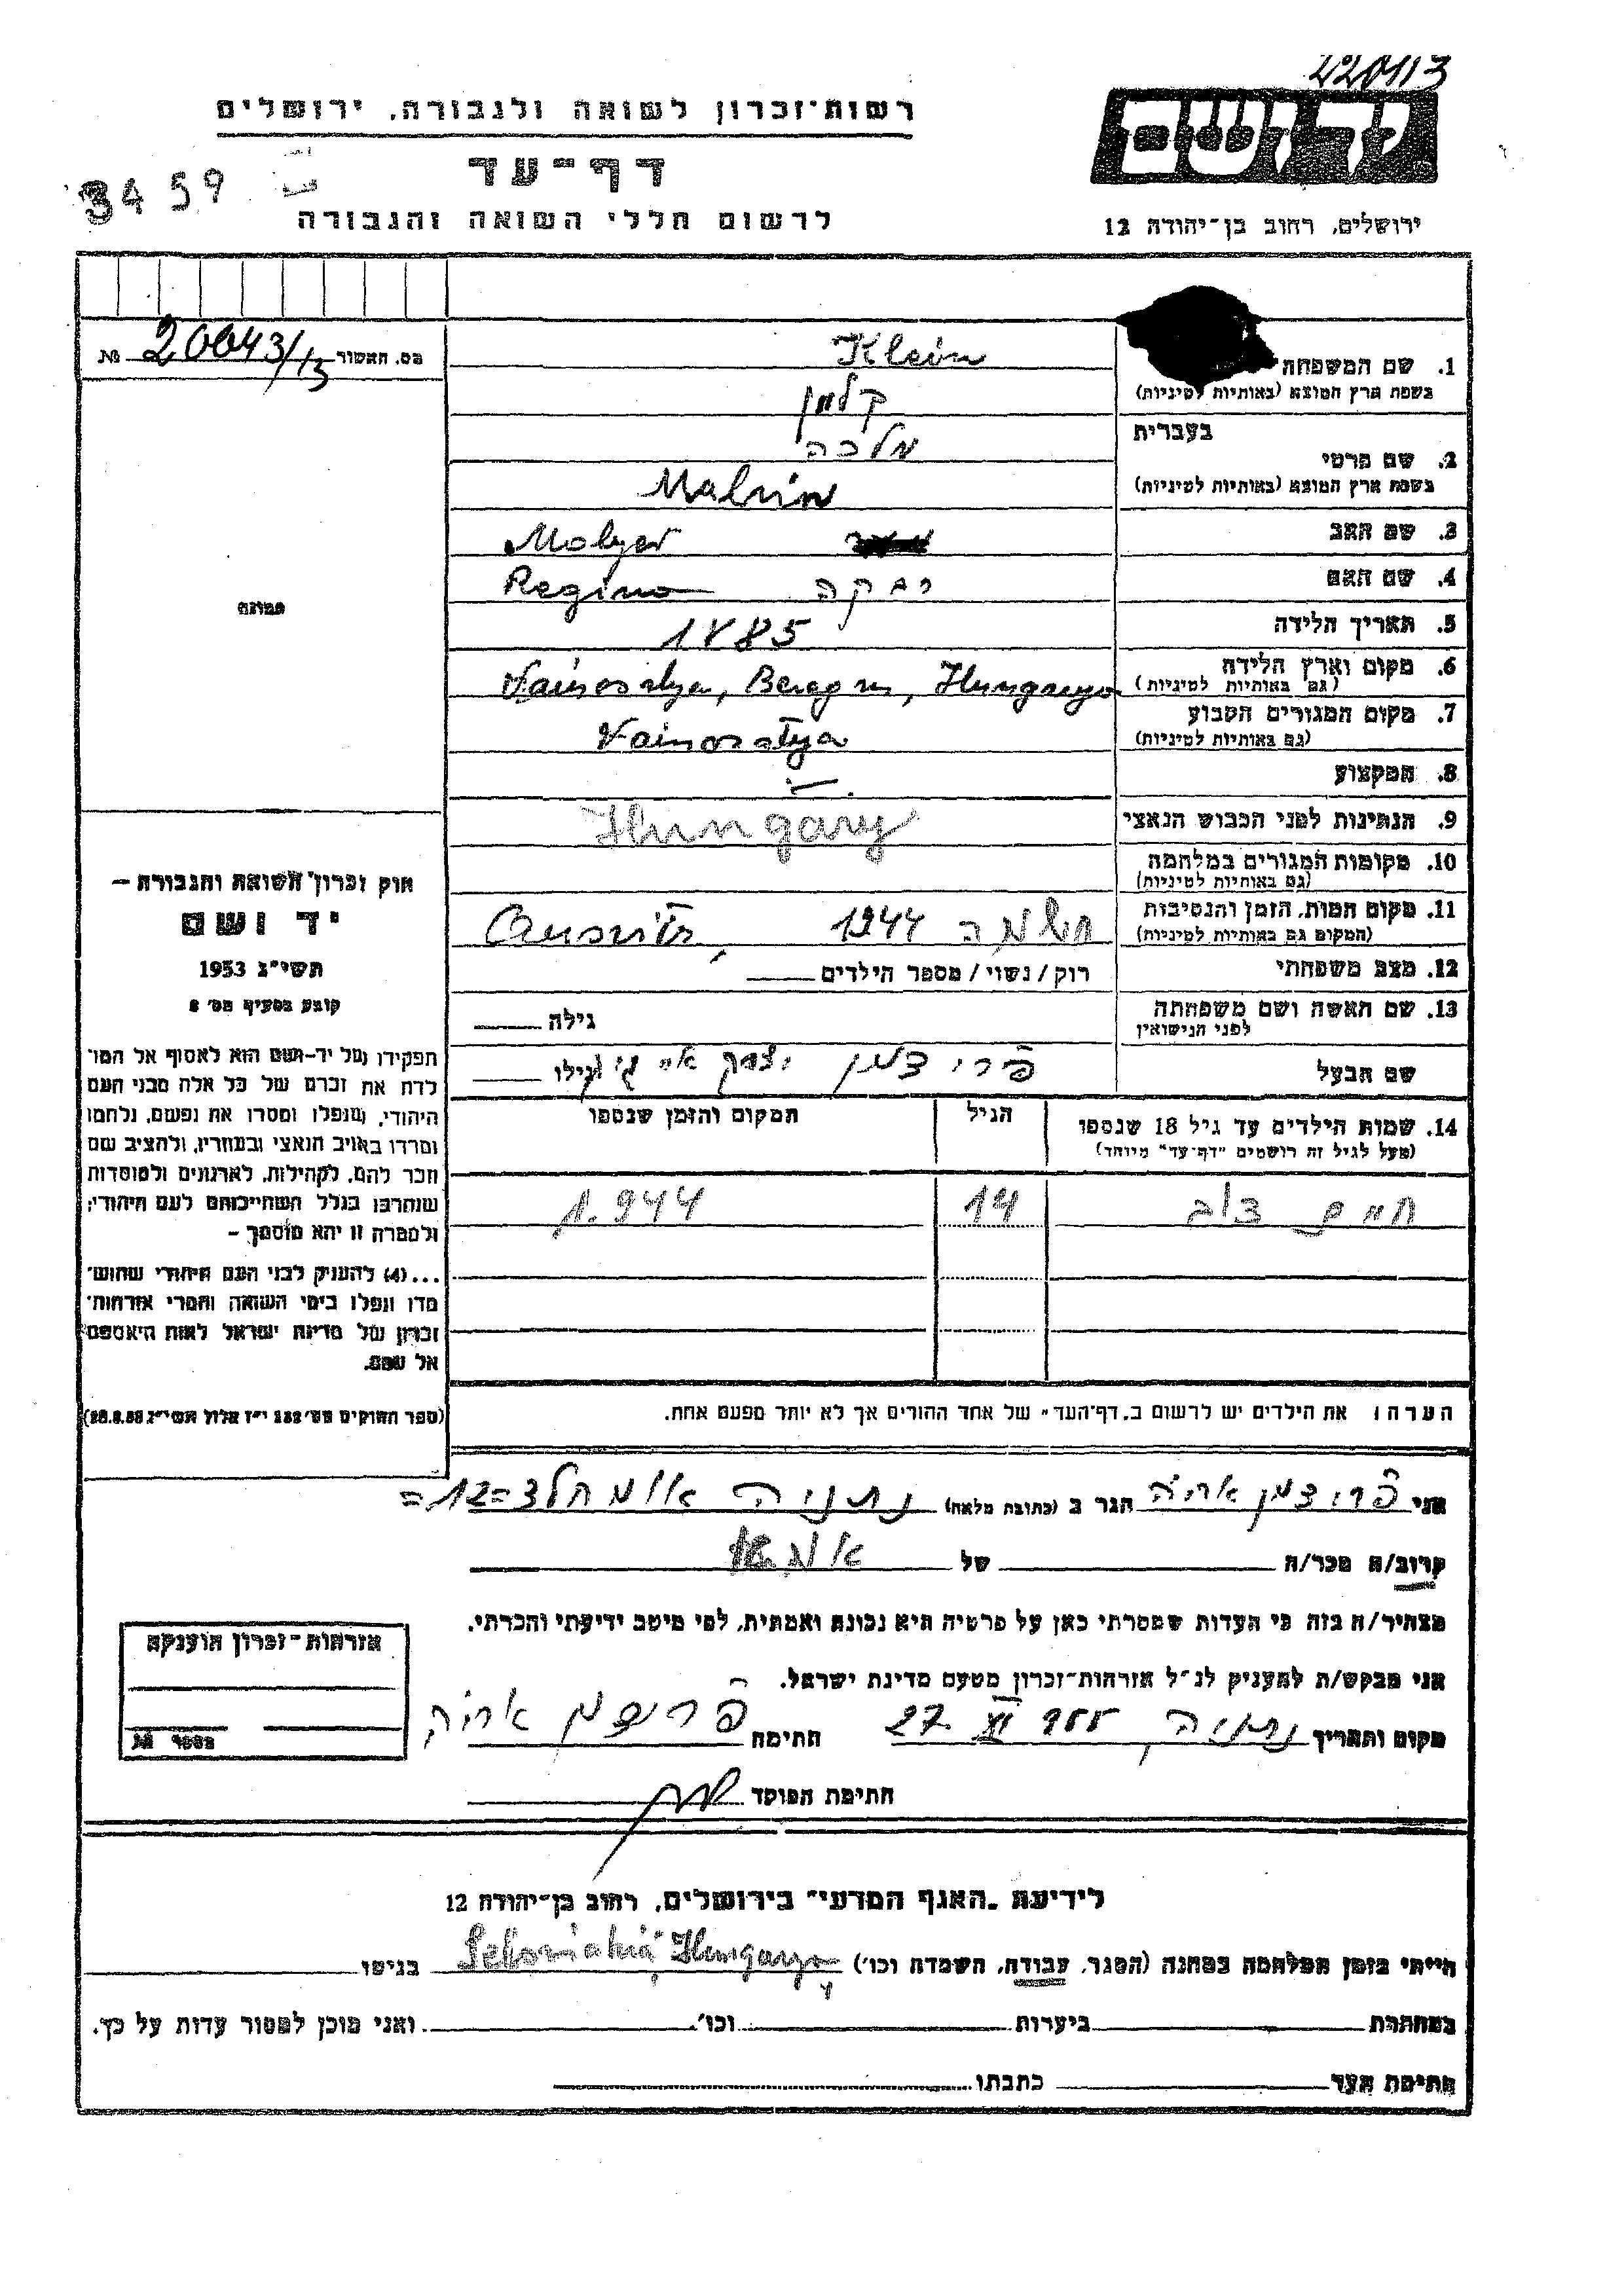 220113
רשות-זכרון לשואה ולגבורה, ירושלים
יד ושם
דף-עד
3459
לרשום חללי השואה והגבורה
ירושלים, רחוב בן-יהודה 12
מס. האשור 20043/13 №
1. שם המשפחה Klein
בשפת ארץ המוצא (באותיות לטיניות)
בעברית קליין
2. שם פרטי מלכה
בשפת ארץ המוצא (באותיות לטיניות) Malvin
3. שם האב
4. שם האם רבקה Regina
5. תאריך הלידה 1885
6. מקום וארץ הלידה
(גם באותיות לטיניות)
7. מקום המגורים הקבוע
(גם באותיות לטיניות)
8. המקצוע —
9. הנתינות לפני הכבוש הנאצי Hungary
10. מקומות המגורים במלחמה
(גם באותיות לטיניות)
11. מקום המות, הזמן והנסיבות 1944
(המקום גם באותיות לטיניות)
12. מצב משפחתי רוק/נשוי/מספר הילדים
13. שם האשה ושם משפחתה גילה
לפני הנישואין
שם הבעל פרידמן יצחק גילו
תמונה
חוק זכרון השואה והגבורה –
יד ושם
תשי"ג 1953
קובע בסעיף מס' 2
תפקידו של יד-ושם הוא לאסוף אל המו־
לדת את זכרם של כל אלה מבני העם
היהודי, שנפלו ומסרו את נפשם, נלחמו
ומרדו באויב הנאצי ובעוזריו, ולהציב שם
וזכר להם, לקהילות, לארגונים ולמוסדות
שנחרבו בגלל השתייכותם לעם היהודי;
ולמטרה זו יהא מוסמך –
...(4) להעניק לבני העם היהודי שהוש־
מדו ונפלו בימי השואה והמרי אזרחות־
זכרון של מדינת ישראל לאות היאספם
אל עמם.
(ספר החוקים מס' 132 י"ז אלול תשי"ג 28.8.53)
14. שמות הילדים עד גיל 18 שנספו הגיל המקום והזמן שנספו
(מעל לגיל זה רושמים "דף-עד" מיוחד)
חיים 14 1944
הערה: את הילדים יש לרשום ב"דף-העד" של אחד ההורים אך לא יותר מפעם אחת.
אני פרידמן אריה הגר ב (כתובת מלאה) נתניה =12=
קרוב/ה מכר/ה של
מצהיר/ה בזה כי העדות שמסרתי כאן על פרטיה היא נכונה ואמתית, לפי מיטב ידיעתי והכרתי.
אני מבקש/ת להעניק לנ"ל אזרחות-זכרון מטעם מדינת ישראל.
מקום ותאריך נתניה, 27 חתימה פרידמן אריה
אזרחות-זכרון הוענקה
מספר №
חתימת הפוקד
לידיעת "האגף המדעי" בירושלים, רחוב בן-יהודה 12
הייתי בזמן המלחמה במחנה (הסגר, עבודה, השמדה וכו') בגיטו
במחתרת ביערות וכו' ואני מוכן למסור עדות על כך.
חתימת העד כתבתו